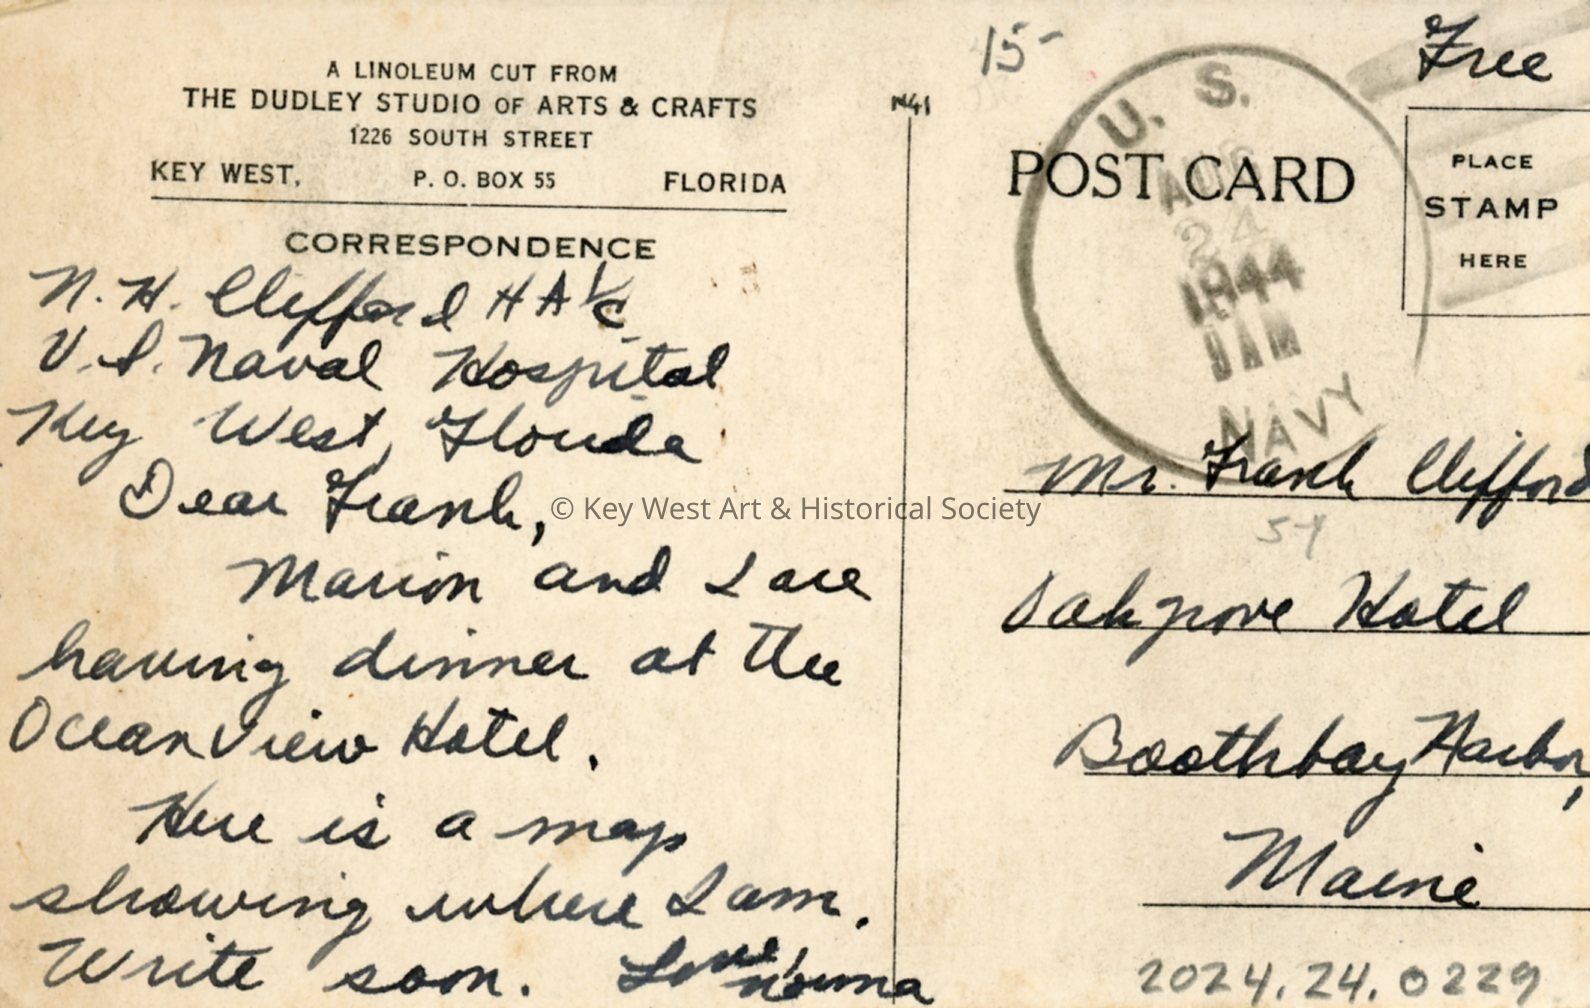 A LINOLEUM CUT FROM
THE DUDLEY STUDIO OF ARTS & CRAFTS
1226 SOUTH STREET
KEY WEST, P. O. BOX 55 FLORIDA
CORRESPONDENCE
N. H. Clifford H A 1/c
U. S. Naval Hospital
Key West, Florida
Dear Frank,
Marion and I are
having dinner at the
Ocean View Hotel.
Here is a map
showing where I am.
Write soon. Love, Norma
15-
N41
Free
U. S.
AUG
24
1944
9 AM
NAVY
POST CARD
PLACE
STAMP
HERE
Mr. Frank Clifford
Oakgrove Hotel
Boothbay Harbor,
Maine
2024.24.0229
© Key West Art & Historical Society